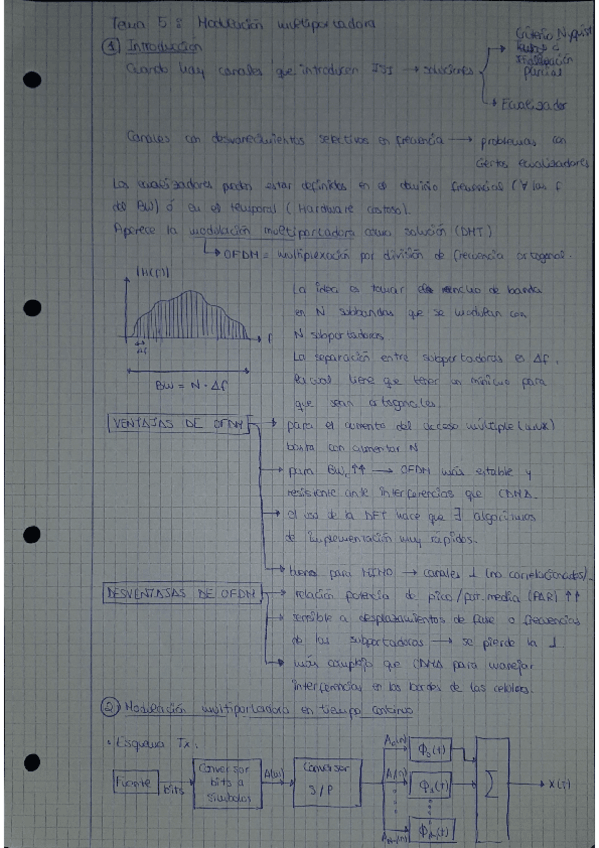 Tema 5: Modulación multiportadora
① Introducción
Cuando hay canales que introducen ISI → soluciones
Criterio Nyquist
Ecualización
parcial
Ecualizador
Canales con desvanecimientos selectivos en frecuencia → problemas con
ciertos ecualizadores
Los ecualizadores pueden estar definidos en el dominio frecuencias (∀ las f
del BW) ó en el temporal (Hardware costoso).
Aparece la modulación multiportadora como solución (DMT)
OFDM = multiplexación por división de frecuencia ortogonal.
|H(f)|
f
Δf
BW = N · Δf
La idea es tomar ancho de banda
en N subbandas que se modulan con
N subportadoras
La separación entre subportadoras es Δf,
la cual tiene que tener un mínimo para
que sean ortogonales.
VENTAJAS DE OFDM
para el aumento del acceso múltiple
basta con aumentar N
para BW ↑↑ → OFDM más estable y
resistente ante interferencias que CDMA.
el uso de la DFT hace que ∃ algoritmos
de implementación muy rápidos.
bueno para MIMO → canales ⊥ (no correlacionados).
DESVENTAJAS DE OFDM
relación potencia de pico/pot. media (PAR) ↑↑
sensible a desplazamientos de fase o frecuencias
de las subportadoras → se pierde la ⊥
más complejo que CDMA para manejar
interferencias en los bordes de las celdas.
② Modulación multiportadora en tiempo continuo
· Esquema Tx:
Fuente
bits
Conversor
bits a
símbolos
A(n)
Conversor
S/P
A₀(n)
ϕ₀(t)
A₁(n)
ϕ₁(t)
ϕN-1(t)
Σ
x(t)